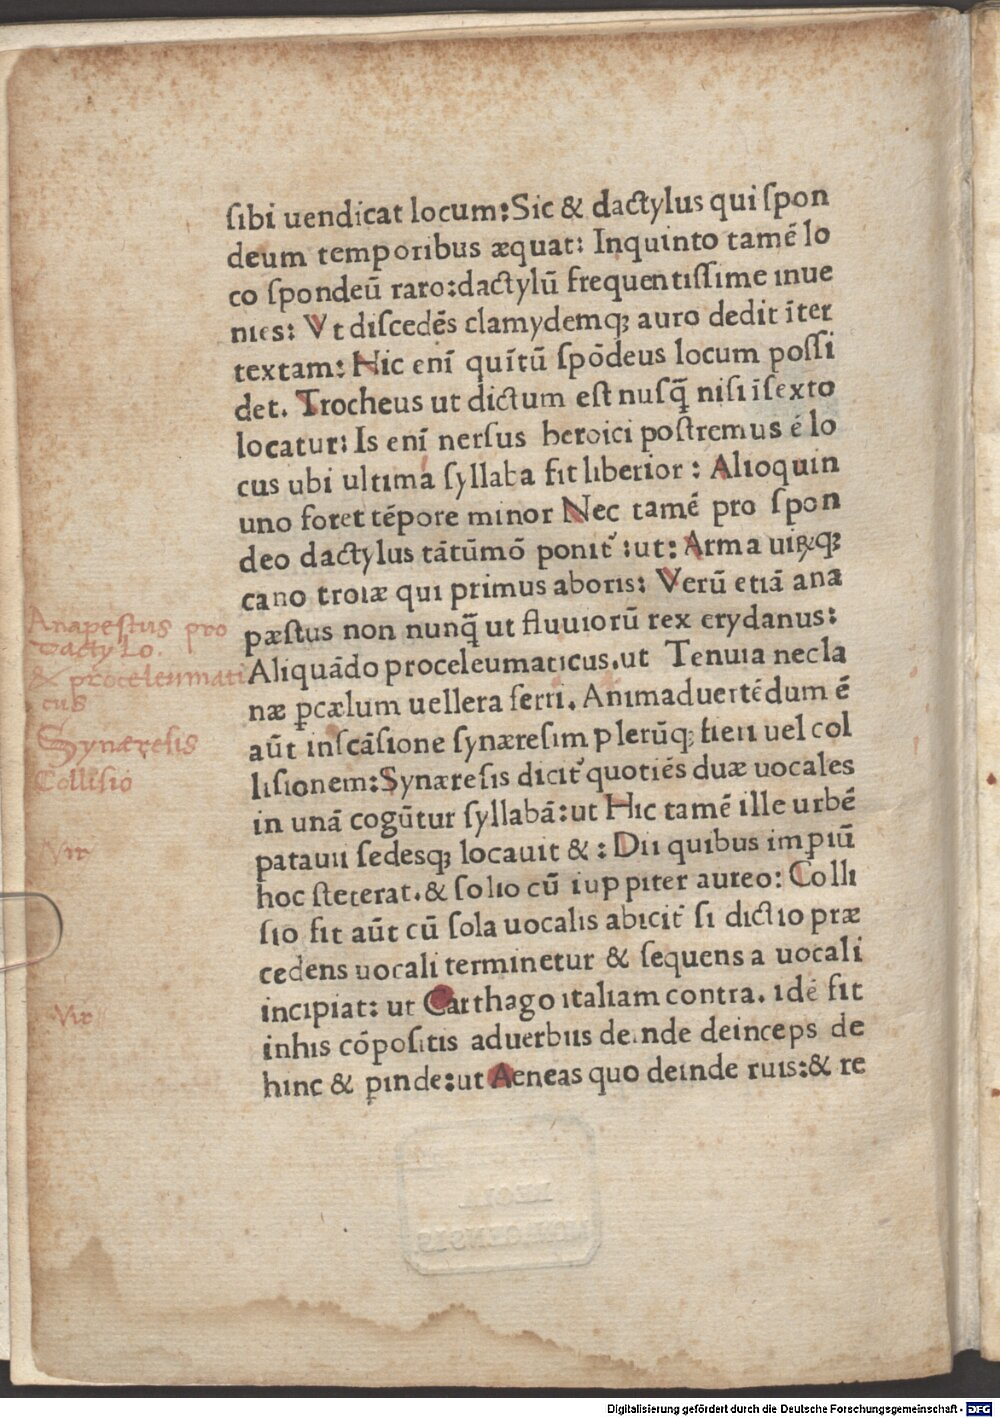 ſibi uendicat locum:Sic & dactylus qui ſpon
deum temporibus æquat: Inquinto tamē lo
co ſpondeū raro:dactylū frequentiſſime inue
nies: Vt diſcedēs clamydemq; auro dedit īter
textam: Hic enī quītū ſpōdeus locum poſſi
det. Trocheus ut dictum eſt nuſq̄ niſi īſexto
locatur: Is enī nerſus heroici poſtremus ē lo
cus ubi ultima ſyllaba fit liberior : Alioquin
uno foret tēpore minor Nec tamē pro ſpon
deo dactylus tātūmō ponit᷑ :ut: Arma uiꝝq;
cano troiæ qui primus aboris: Verū etiā ana
pæſtus non nunq̄ ut fluuiorū rex erydanus:
Aliquādo proceleumaticus.ut Tenuia necla
næ ꝑcælum uellera ferri. Animaduertēdum ē
aūt inſcāſione ſynæreſim plerūq; fieri uel col
liſionem:Synæreſis dicit᷑ quotiēs duæ uocales
in unā cogūtur ſyllabā:ut Hic tamē ille urbē
patauii ſedesq; locauit & : Dii quibus impiū
hoc ſteterat.& ſolio cū iuppiter aureo: Colli
ſio fit aūt cū ſola uocalis abicit᷑ ſi dictio præ
cedens uocali terminetur & ſequens a uocali
incipiat: ut Carthago italiam contra. idē fit
inhis cōpoſitis aduerbiis deinde deinceps de
hinc & ꝓinde:ut Aeneas quo deinde ruis:& re
Anapeſtus pro
Dactylo.
& proceleumati
cus
Synæreſis
Colliſio
Vir
Vir
Digitalisierung gefördert durch die Deutsche Forschungsgemeinschaft - DFG